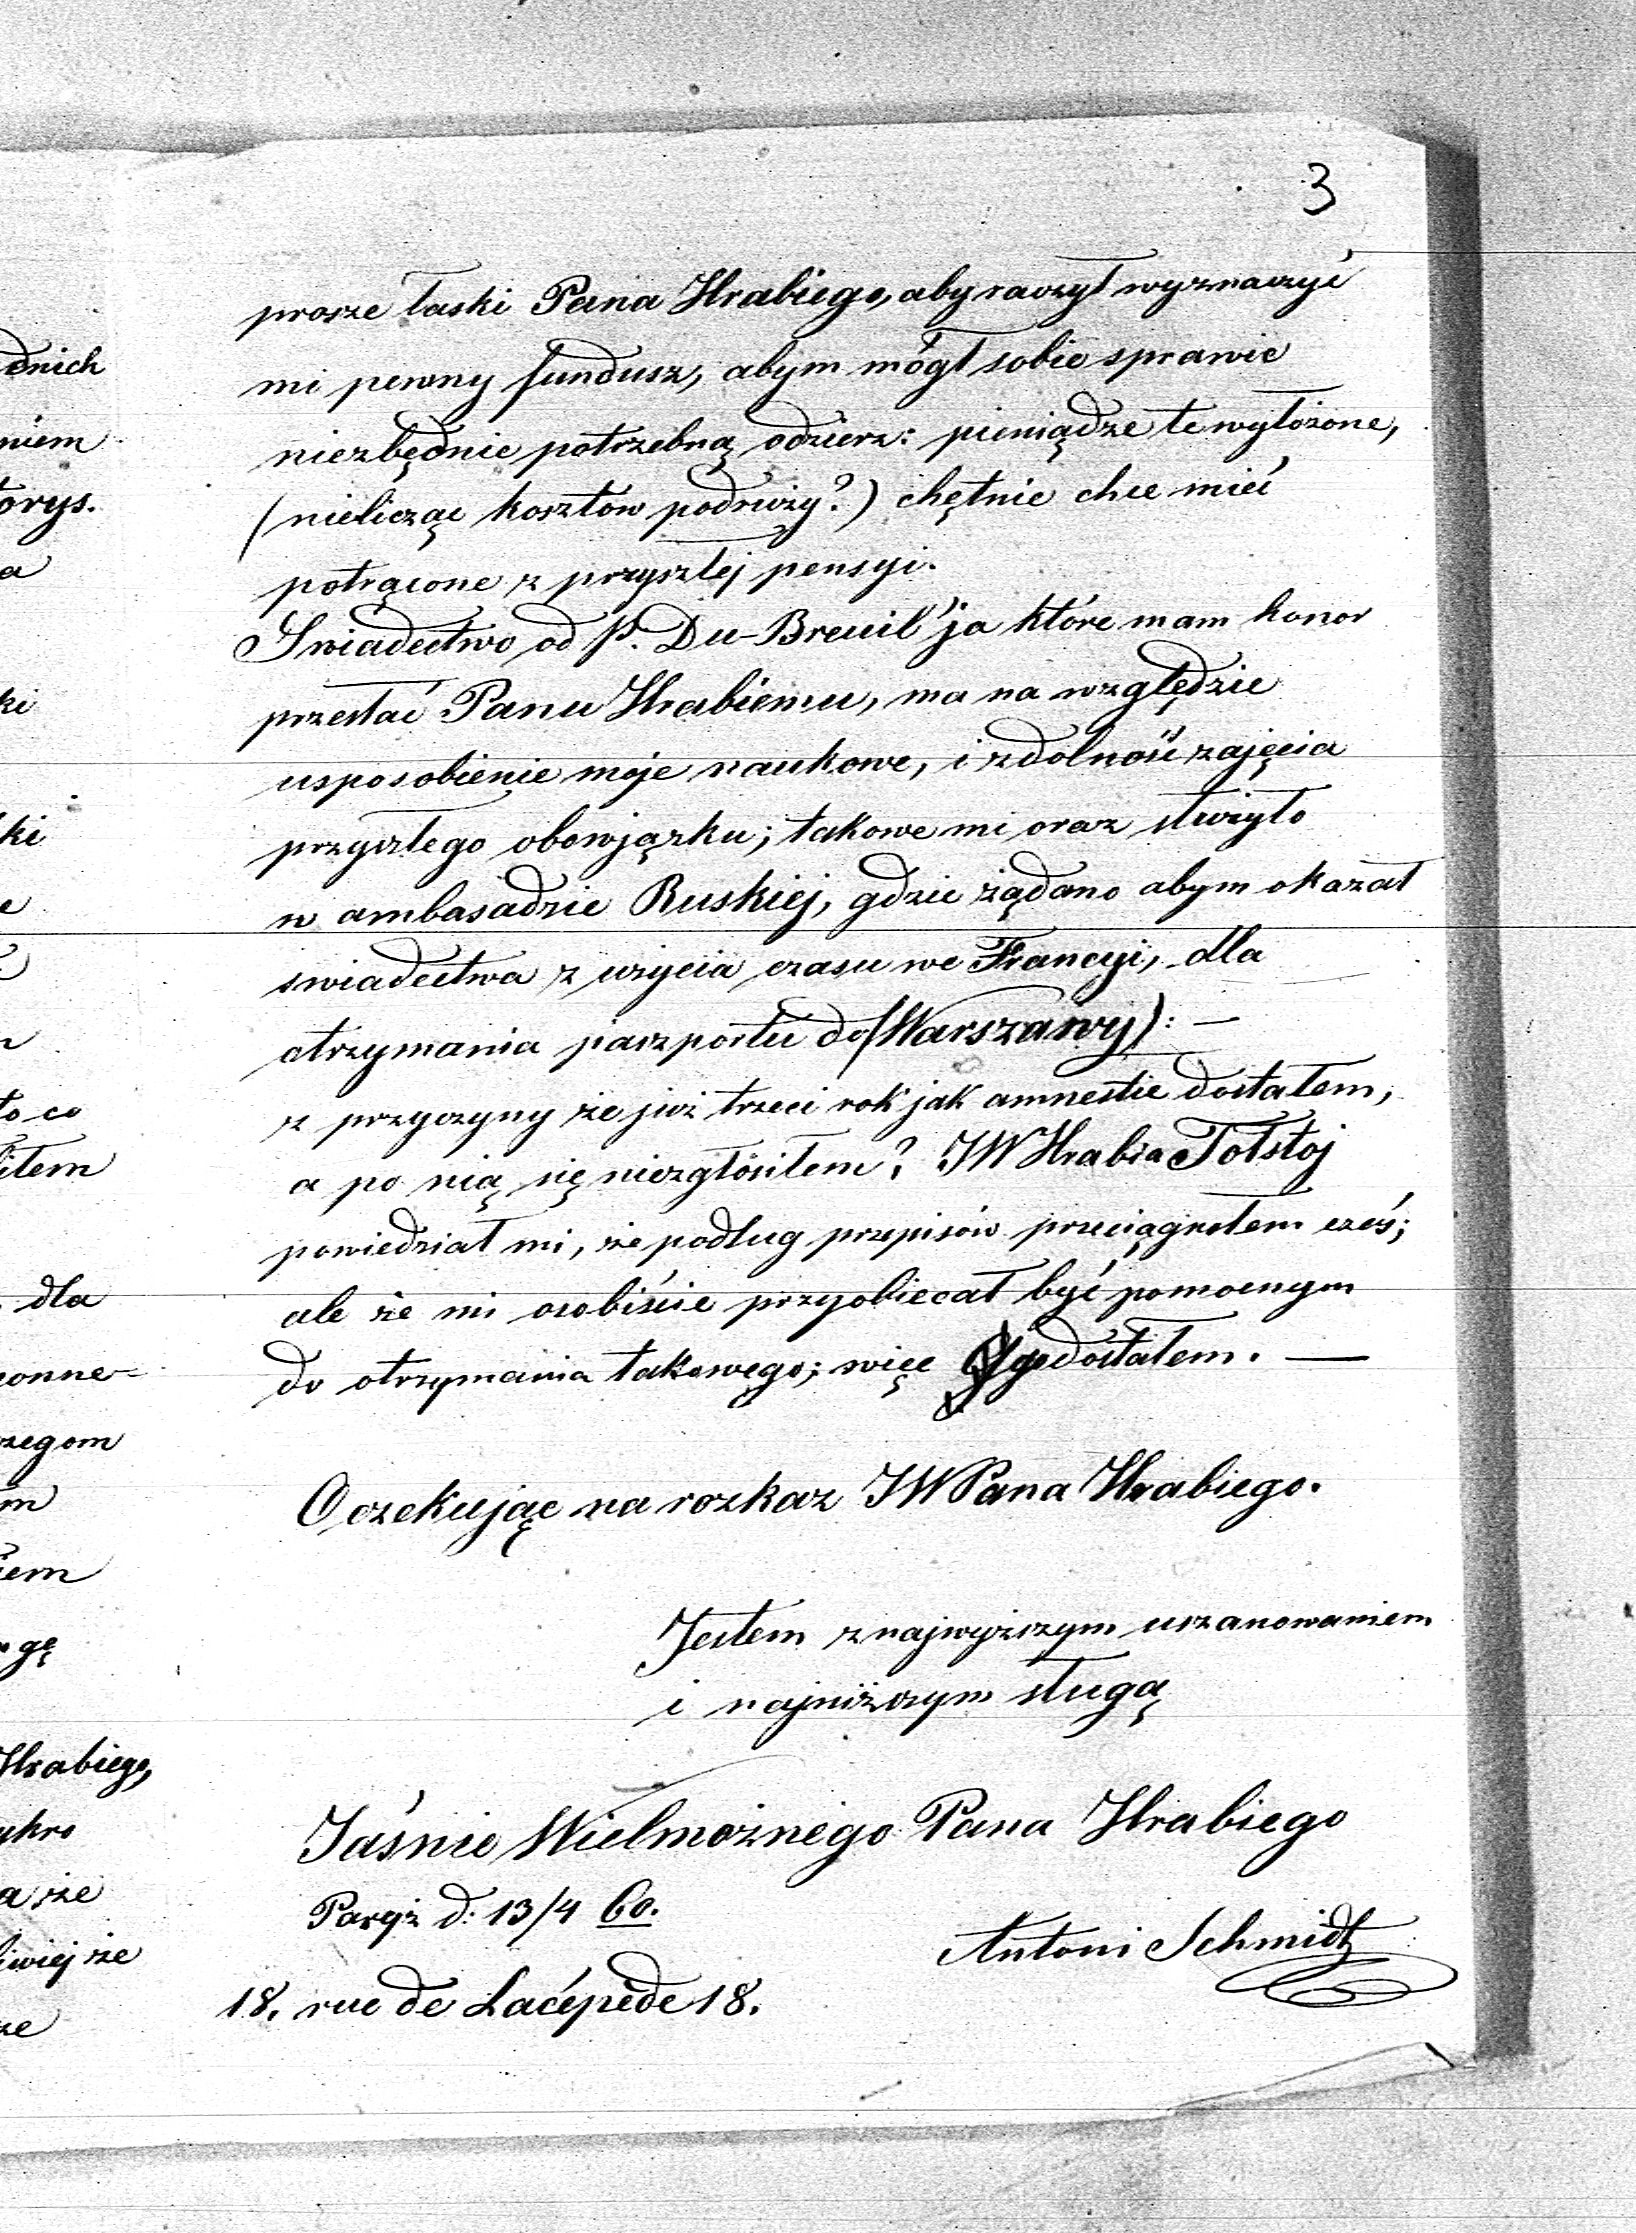 3
prosze łaski Pana Hrabiego, aby raczył wyznaczyć
mi pewny fundusz, abym mógł sobie sprawić
niezbędnie potrzebną odzierz: pieniądze te wyłożone,
(nieliczząc kosztow podróży?) chętnie chce mieć
potrącone z przyszłej pensyi.
Swiadectwo od P. Du-Breuil'ja które mam honor
przesłać Panu Hrabiemu, ma na względzie
usposobienie moje naukowe, i zdolność zajęcia
przyszłego obowjązku; takowe mi oraz służyło
w ambasadzie Ruskiej, gdzie żądano abym okazał
swiadectwa z użycia czasu we Francyi, dla
otrzymania paszportu do (Warszawy): —
z przyczyny że już trzeci rok jak amnestie dostałem,
a po nią się niezgłósiłem? JW Hrabia Tołstoj
powiedział mi, że podług przepisów przeciągnołem czas;
ale że mi osobiście przyobiecał być pomocnym
do otrzymania takowego; więc go dostałem. —
Oczekując na rozkaz JW Pana Hrabiego.
Jestem z najwyższym uszanowaniem
i najniższym sługą
Jaśnie Wielmożnego Pana Hrabiego
Paryż d: 13/4 60.
Antoni Schmidt
18. rue de Lacépède 18.
dnich
niem
orys.
a
ki
ki
e
to co
iłem
dla
conne=
zegom
m
iem
gę
Hrabiego,
ykro
a że
iwiej że
ze